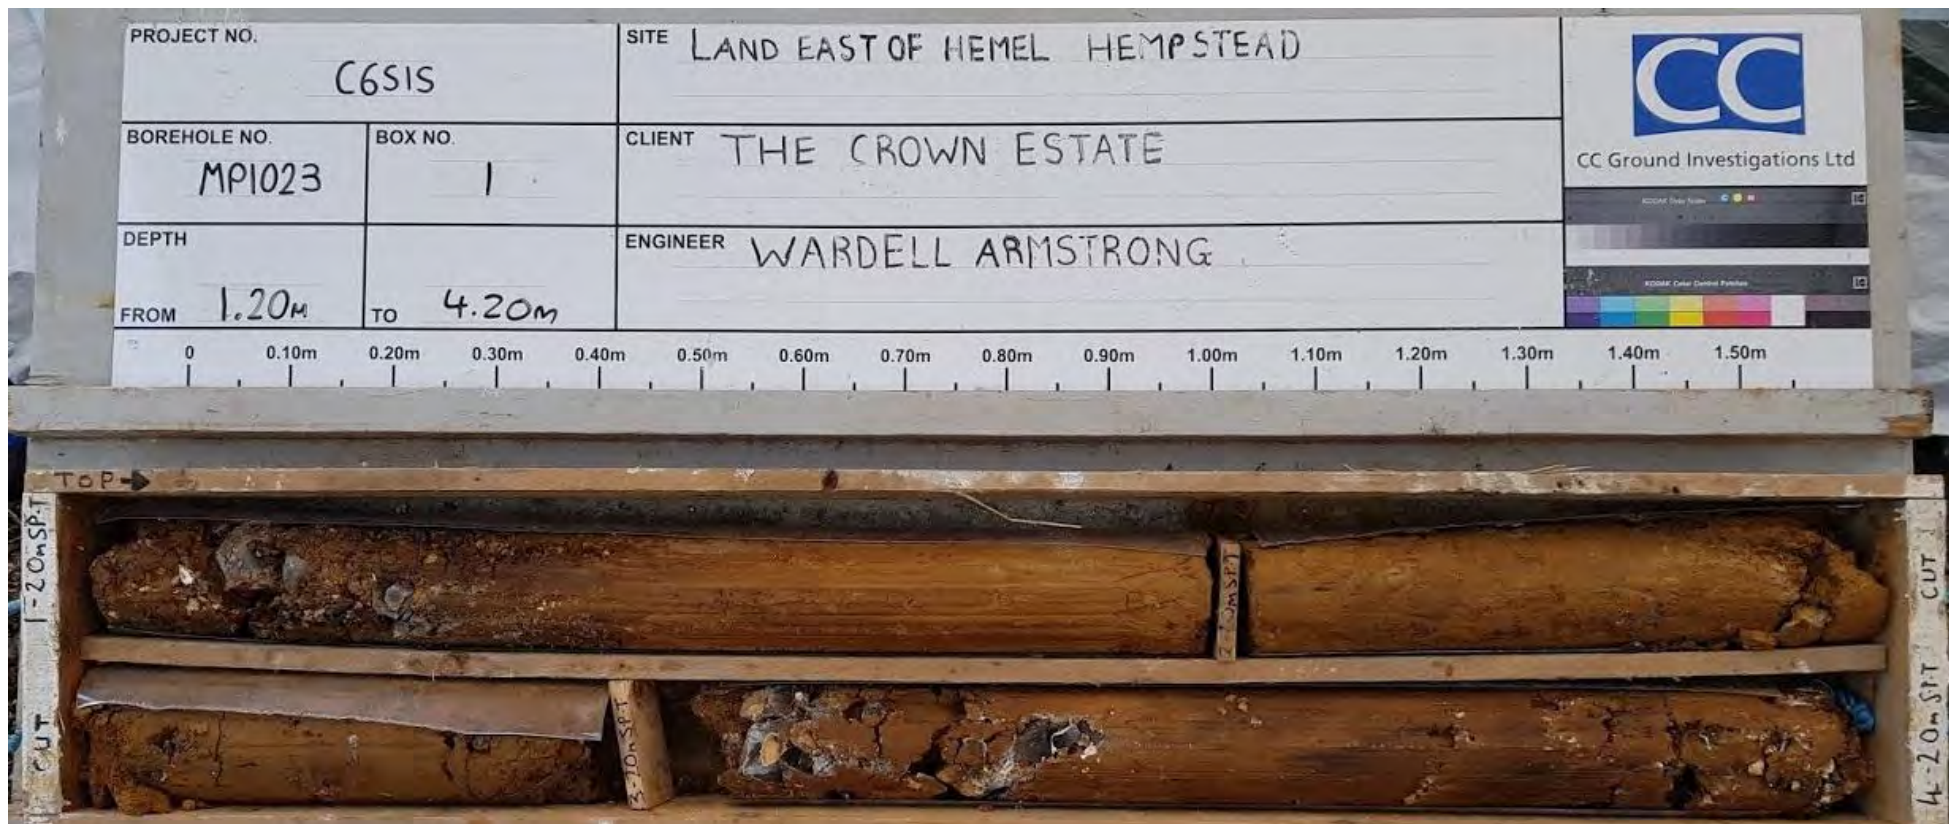 PROJECT NO.
C6515
SITE LAND EAST OF HEMEL HEMPSTEAD
CC
CC Ground Investigations Ltd
BOREHOLE NO.
MP1023
BOX NO.
1
CLIENT THE CROWN ESTATE
DEPTH
FROM 1.20m
TO 4.20m
ENGINEER WARDELL ARMSTRONG
KODAK Color Control Patches
0 0.10m 0.20m 0.30m 0.40m 0.50m 0.60m 0.70m 0.80m 0.90m 1.00m 1.10m 1.20m 1.30m 1.40m 1.50m
TOP →
1-20mSPT
CUT
3-20mSPT
CUT
4-20mSPT